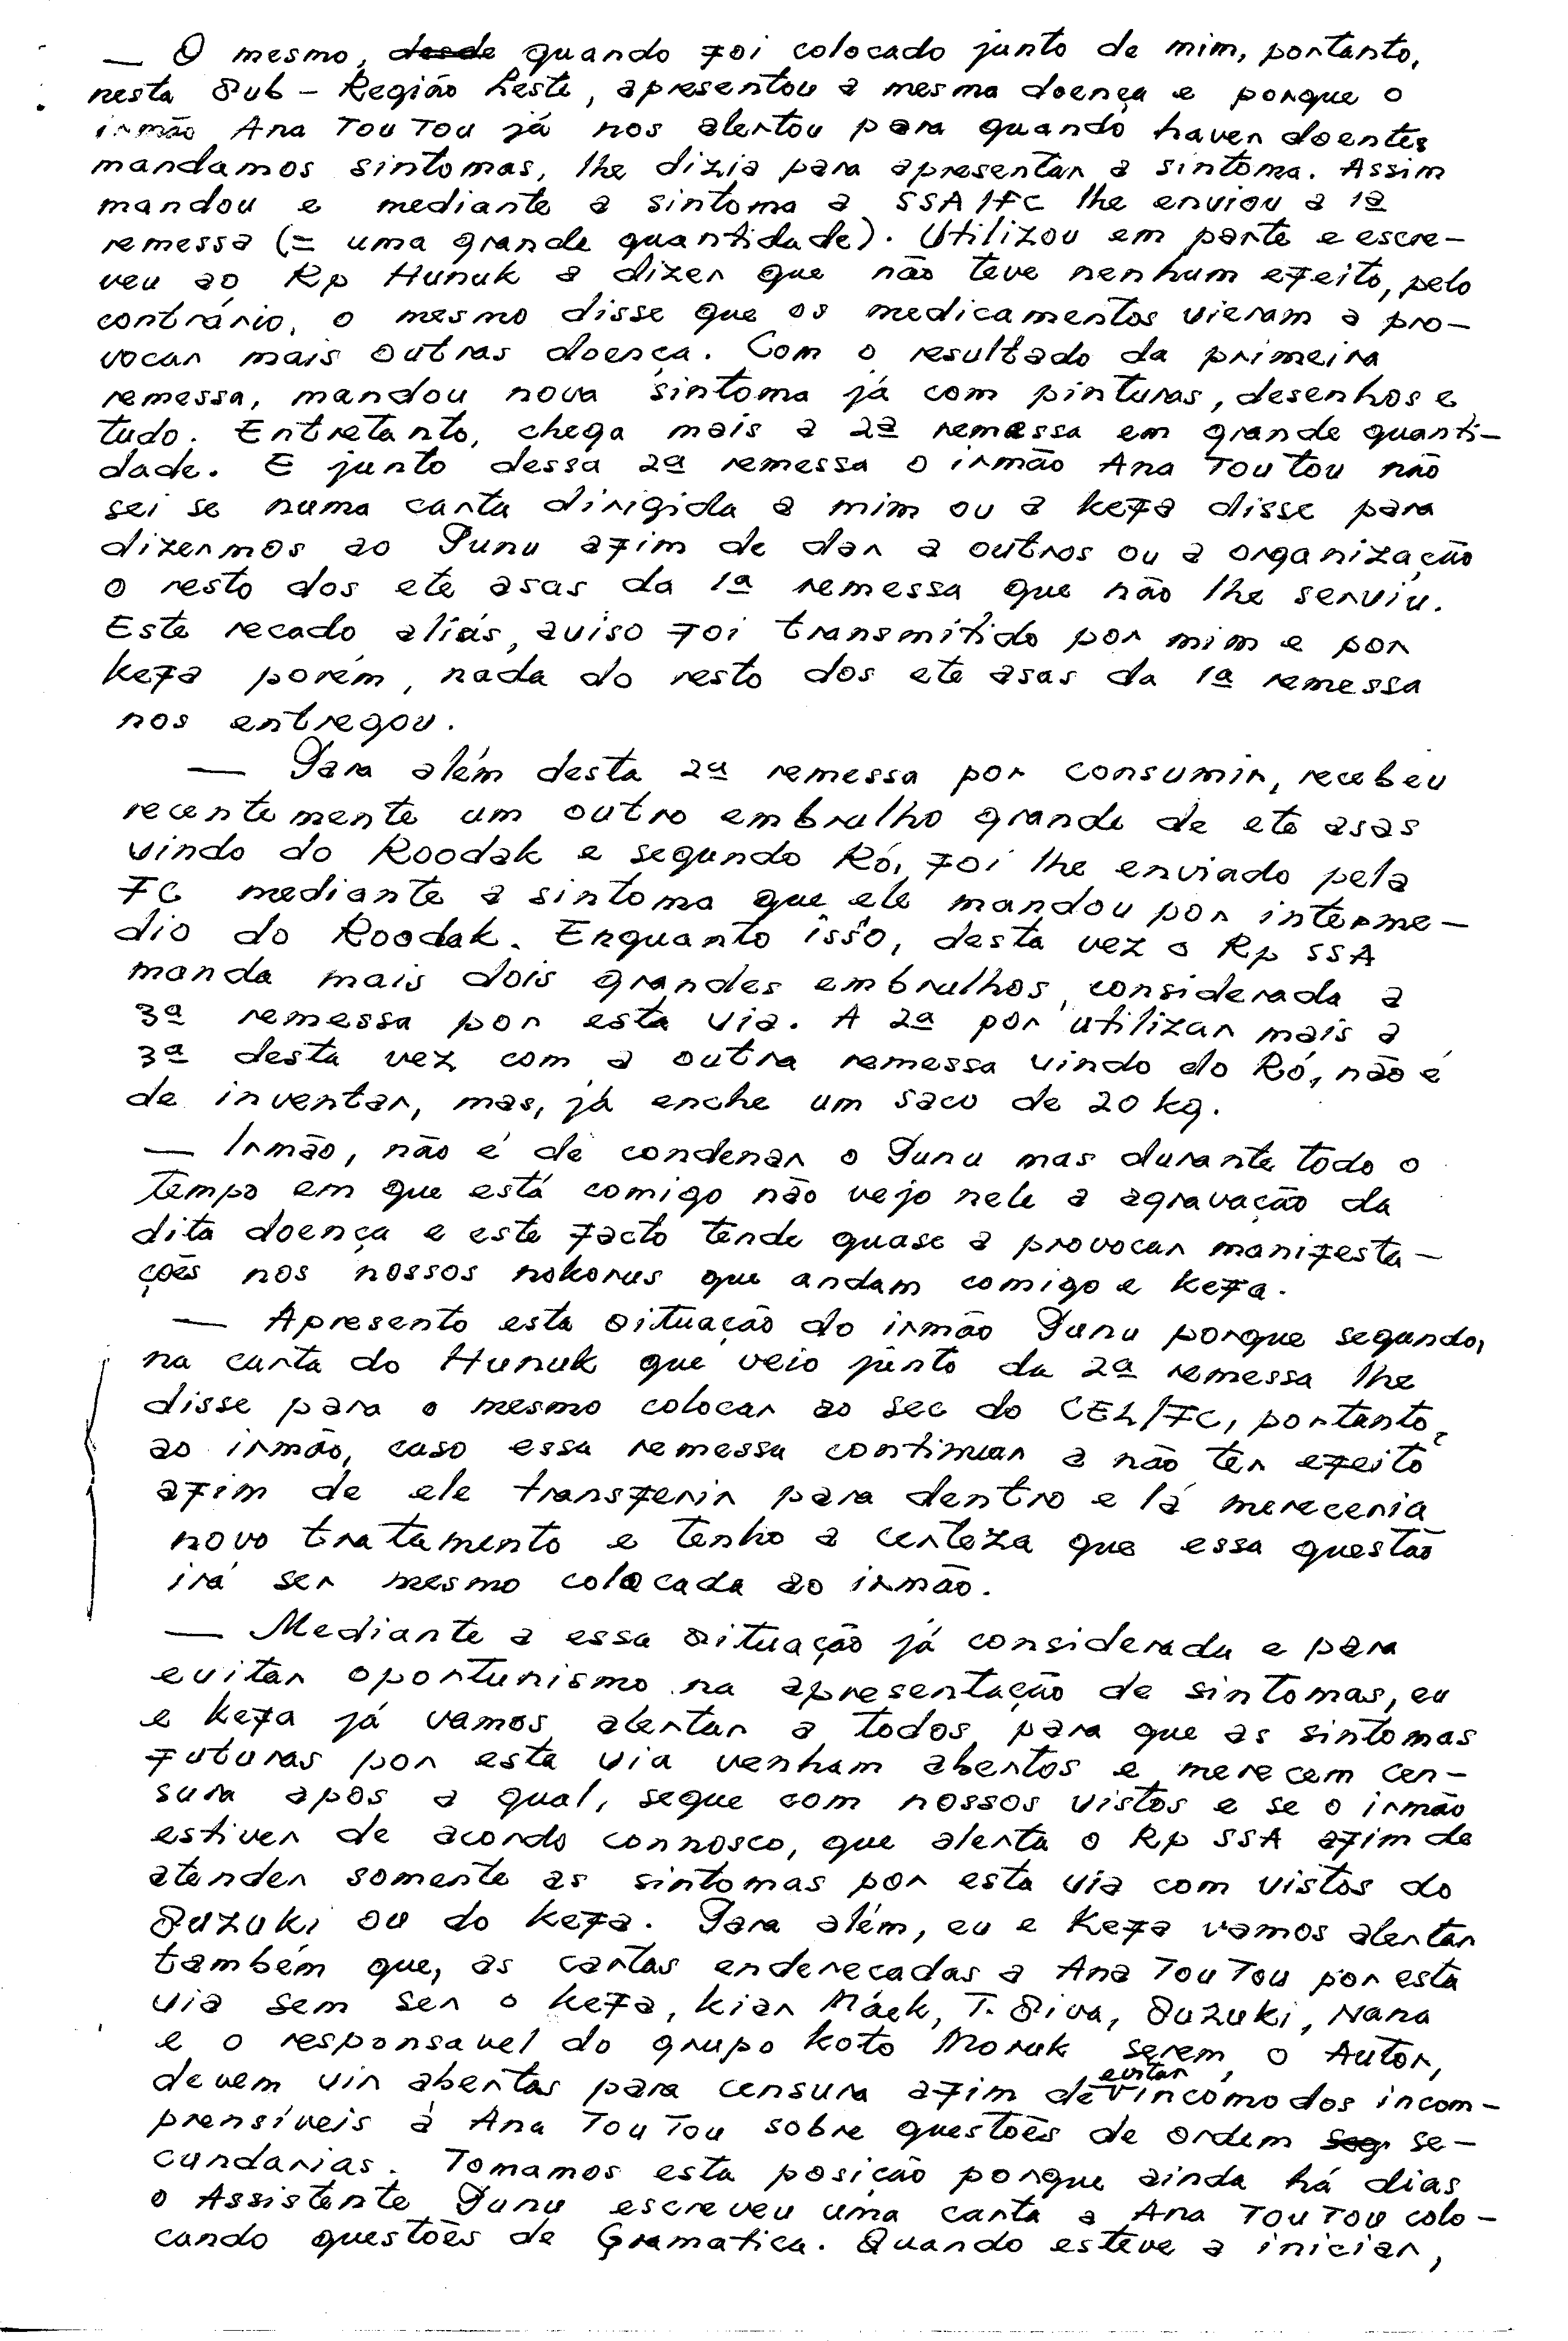 — O mesmo, desde quando foi colocado junto de mim, portanto,
nesta Sub-Região Leste, apresentou a mesma doença e porque o
irmão Ana Tou Tou já nos alertou para quando haver doentes
mandamos sintomas, lhe dizia para apresentar a sintoma. Assim
mandou e mediante a sintoma a SSA/FC lhe enviou a 1ª
remessa (= uma grande quantidade). Utilizou em parte e escre-
veu ao Rp Hunuk a dizer que não teve nenhum efeito, pelo
contrário, o mesmo disse que os medicamentos vieram a pro-
vocar mais outras doença. Com o resultado da primeira
remessa, mandou nova sintoma já com pinturas, desenhos e
tudo. Entretanto, chega mais a 2ª remessa em grande quanti-
dade. E junto dessa 2ª remessa o irmão Ana Tou Tou não
sei se numa carta dirigida a mim ou a kefa disse para
dizermos ao Punu afim de dar a outros ou a organização
o resto dos ete asas da 1ª remessa que não lhe serviu.
Este recado aliás, aviso foi transmitido por mim e por
kefa porém, nada do resto dos ete asas da 1ª remessa
nos entregou.
— Para além desta 2ª remessa por consumir, recebeu
recentemente um outro embrulho grande de ete asas
vindo do Roodak e segundo Ró, foi lhe enviado pela
FC mediante a sintoma que ele mandou por interme-
dio do Roodak. Enquanto isso, desta vez o Rp SSA
manda mais dois grandes embrulhos, considerada a
3ª remessa por esta via. A 2ª por utilizar mais a
3ª desta vez com a outra remessa vindo do Ró, não é
de inventar, mas, já enche um saco de 20 kg.
— Irmão, não é de condenar o Punu mas durante todo o
tempo em que está comigo não vejo nele a agravação da
dita doença e este facto tende quase a provocar manifesta-
ções nos nossos nokorus que andam comigo e kefa.
— Apresento esta situação do irmão Punu porque segundo,
na carta do Hunuk que veio junto da 2ª remessa lhe
disse para o mesmo colocar ao sec do CEL/FC, portanto,
ao irmão, caso essa remessa continuar a não ter efeito
afim de ele transferir para dentro e lá mereceria
novo tratamento e tenho a certeza que essa questão
irá ser mesmo colocada ao irmão.
— Mediante a essa situação já considerada e para
evitar oportunismo na apresentação de sintomas, eu
e kefa já vamos alertar a todos para que as sintomas
futuras por esta via venham abertos e merecem cen-
sura após a qual, segue com nossos vistos e se o irmão
estiver de acordo connosco, que alerta o Rp SSA afim de
atender somente as sintomas por esta via com vistos do
Suzuki ou do kefa. Para além, eu e Kefa vamos alertar
também que, as cartas enderecadas a Ana Tou Tou por esta
via sem ser o kefa, kiar Máek, T. Siva, Suzuki, Nana
e o responsavel do grupo koto Moruk serem o Autor,
devem vir abertas para censura afim de evitar incomodos incom-
prensíveis à Ana Tou Tou sobre questões de ordem seg. se-
cundarias. Tomamos esta posição porque ainda há dias
o Assistente Punu escreveu uma carta a Ana Tou Tou colo-
cando questões de Gramatica. Quando esteve a iniciar,